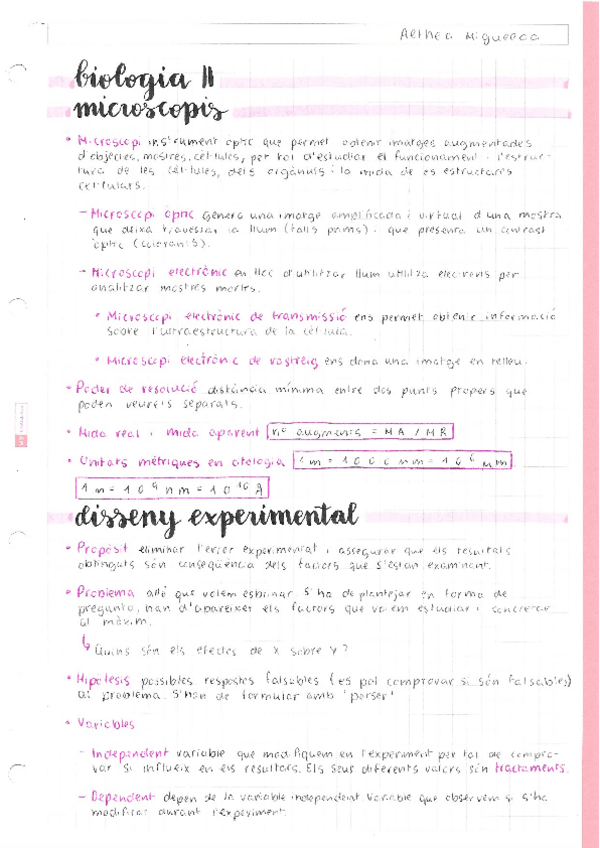 Althea Miguenca
biologia II
microscopis
• Microscopi instrument òptic que permet obtenir imatges augmentades
d'objectes, mostres, cèl·lules, per tal d'estudiar el funcionament i l'estruc-
tura de les cèl·lules, dels orgànuls i la mida de es estructures
cel·lulars.
- Microscopi òptic genera una imatge amplificada i virtual d'una mostra
que deixa travessar la llum (talls prims) i que presenta un contrast
òptic (colorants).
- Microscopi electrònic en lloc d'utilitzar llum utilitza electrons per
analitzar mostres mortes.
• Microscopi electrònic de transmissió ens permet obtenir informació
sobre l'ultraestructura de la cèl·lula.
• Microscopi electrònic de rastreig ens dona una imatge en relleu.
• Poder de resolució distància mínima entre dos punts propers que
poden veure's separats.
• Mida real i mida aparent nº augments = MA / MR
• Unitats mètriques en citologia 1 m = 1000 mm = 10⁶ μm
1 m = 10⁹ nm = 10¹⁰ Å
disseny experimental
• Propòsit eliminar l'error experimental i assegurar que els resultats
obtinguts són conseqüència dels factors que s'estan examinant.
• Problema allò que volem esbrinar. S'ha de plantejar en forma de
pregunta, han d'aparèixer els factors que volem estudiar i concretar
al màxim.
↳ Quins són els efectes de X sobre Y?
• Hipòtesis possibles respostes falsables (es pot comprovar si són falsables)
al problema. S'han de formular amb 'potser'
• Variables
- Independent variable que modifiquem en l'experiment per tal de compro-
var si influeix en els resultats. Els seus diferents valors són tractaments.
- Dependent depen de la variable independent. Variable que observem si s'ha
modificat durant l'experiment